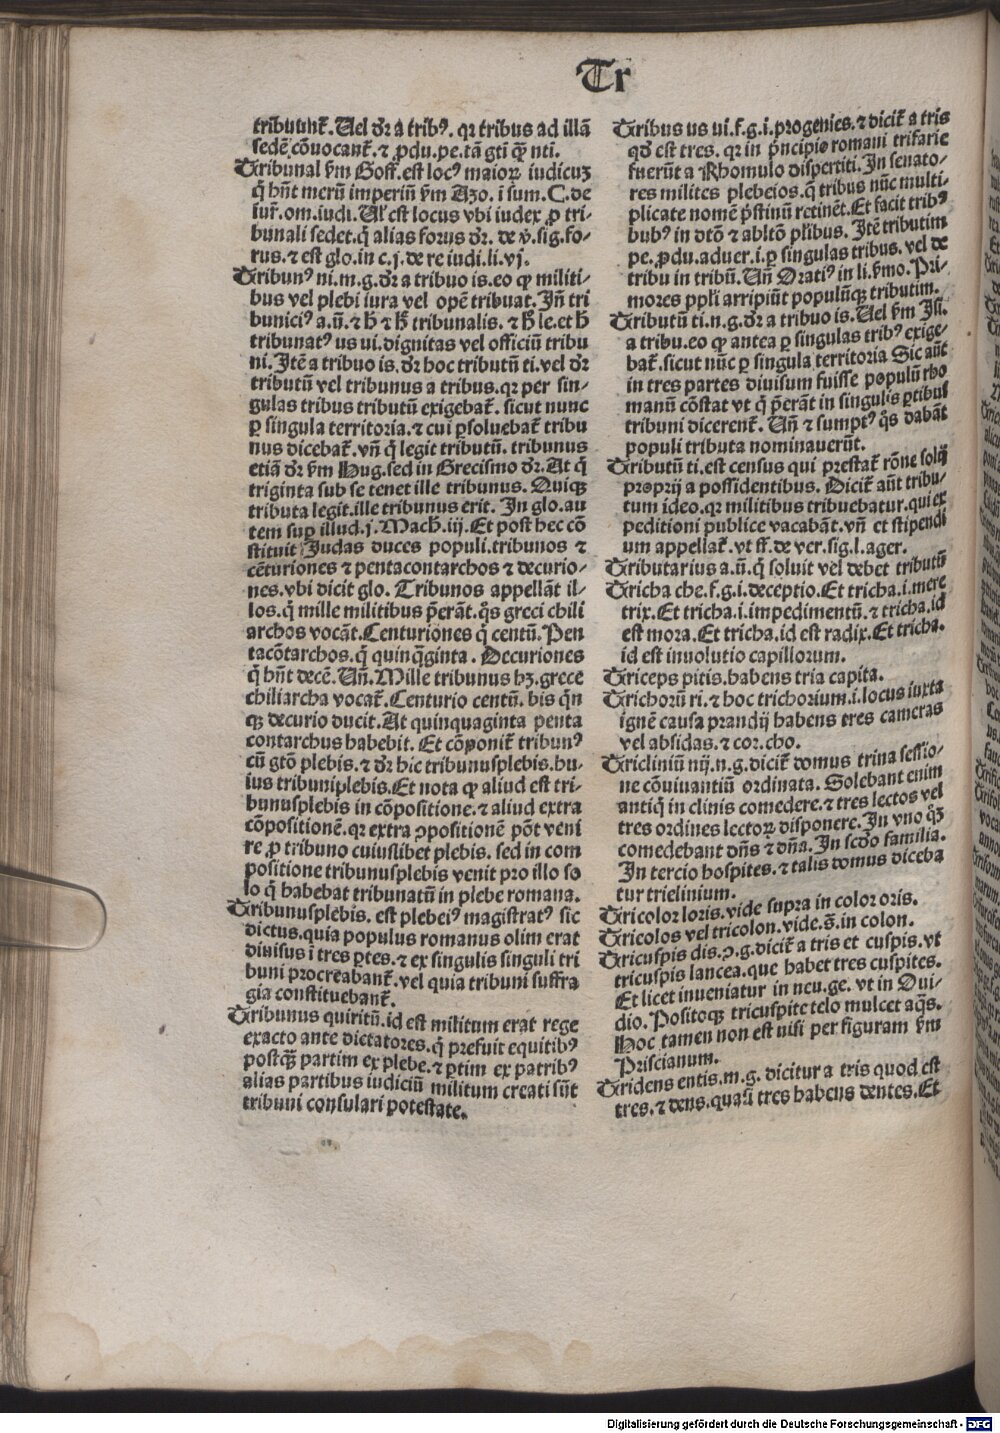 Tr
tribuunt̄. Uel d̄r a tribꝰ. qꝛ tribus ad illā
sedē cōuocant̄. ⁊ ꝓdu. pe. tā gti q̄ nti.
Tribunal ẜm Goff. est locꝰ maioꝝ iudicuꝫ
q̄ hn̄t merū imperiū ẜm Azo. ī sum. C. de
iur̄. om. iudi. Al̄ est locus vbi iudex ꝓ tri⸗
bunali sedet. q̄ alias forus d̄r. de v̄. sig. fo⸗
rus. ⁊ est glo. in c. j. de re iudi. li. vj.
Tribunꝰ ni. m. g. d̄r a tribuo is. eo ꝙ militi⸗
bus vel plebi iura vel opē tribuat. In̄ tri
buniciꝰ a. ū. ⁊ h̄ ⁊ h̄ tribunalis. ⁊ h̄ le. et h̄
tribunatꝰ us ui. dignitas vel officiū tribu
ni. Itē a tribuo is. d̄r hoc tributū ti. vel d̄r
tributū vel tribunus a tribus. qꝛ per sin⸗
gulas tribus tributū exigebat̄. sicut nunc
ꝑ singula territoria. ⁊ cui ꝑsoluebat̄ tribu
nus dicebat̄. vn̄ q̄ legit tributū. tribunus
etiā d̄r ẜm Hug. sed in Grecismo d̄r. At q̄
triginta sub se tenet ille tribunus. Quiqꝫ
tributa legit. ille tribunus erit. In glo. au
tem suꝑ illud. j. Mach. iij. Et post hec cō
stituit Judas duces populi. tribunos ⁊
cēturiones ⁊ pentacontarchos ⁊ decurio⸗
nes. vbi dicit glo. Tribunos appellāt il⸗
los. q̄ mille militibus p̄erāt. q̄s greci chili
archos vocāt. Centuriones q̄ centū. Pen
tacōtarchos. q̄ quinq̄ginta. Decuriones
q̄ hn̄t decē. Un̄. Mille tribunus hꝫ. grece
chiliarcha vocat̄. Centurio centū. bis q̄n
qꝫ decurio ducit. At quinquaginta penta
contarchus habebit. Et cōponit̄ tribunꝰ
cū gtō plebis. ⁊ d̄r hic tribunusplebis. hu⸗
ius tribuniplebis. Et nota ꝙ aliud est tri⸗
bunusplebis in cōpositione. ⁊ aliud extra
cōpositionē. qꝛ extra ꝯpositionē pōt veni
re ꝓ tribuno cuiuslibet plebis. sed in com
positione tribunusplebis venit pro illo so
lo q̄ habebat tribunatū in plebe romana.
Tribunusplebis. est plebeiꝰ magistratꝰ sic
dictus. quia populus romanus olim erat
diuisus ī tres ꝑtes. ⁊ ex singulis singuli tri
buni procreabant̄. vel quia tribuni suffra
gia constituebant̄.
Tribunus quiritū. id est militum erat rege
exacto ante dictatores. q̄ prefuit equitibꝰ
postqꝫ partim ex plebe. ⁊ ꝑtim ex patribꝰ
alias partibus iudiciū militum creati sūt
tribuni consulari potestate.
Tribus us ui. f. g. i. progenies. ⁊ dicit̄ a tris
qd̄ est tres. qꝛ in p̄ncipio romani trifarie
fuerūt a Rhomulo dispertiti. In senato⸗
res milites plebeios. q̄ tribus nūc multi⸗
plicate nomē p̄stinū retinēt. Et facit tribꝰ
bubꝰ in dtō ⁊ abltō pl̄ibus. Itē tributim
pe. ꝓdu. aduer. i. ꝑ singulas tribus. vel de
tribu in tribū. Un̄ Oratiꝰ in li. ẜmo. Pri⸗
mores ppl̄i arripiūt populūqꝫ tributim.
Tributū ti. n. g. d̄r a tribuo is. Uel ẜm Isi.
a tribu. eo ꝙ antea ꝑ singulas tribꝰ exige⸗
bat̄. sicut nūc ꝑ singula territoria Sic aūt
in tres partes diuisum fuisse populū rho
manū cōstat vt q̄ p̄erāt in singulis ꝑtibus
tribuni dicerent̄. Un̄ ⁊ sumptꝰ q̄s dabāt
populi tributa nominauerūt.
Tributū ti. est census qui prestat̄ rōne soliꝫ
proprij a possidentibus. Dicit̄ aūt tribu⸗
tum ideo. qꝛ militibus tribuebatur. qui ex
peditioni publice vacabāt. vn̄ et stipendi
um appellat̄. vt ff. de ver. sig. l. ager.
Tributarius a. ū. q̄ soluit vel debet tributū
Tricha che. f. g. i. deceptio. Et tricha. i. mere
trix. Et tricha. i. impedimentū. ⁊ tricha. id
est mora. Et tricha. id est radix. Et tricha.
id est inuolutio capillorum.
Triceps pitis. habens tria capita.
Trichorū ri. ⁊ hoc trichorium. i. locus iuxta
ignē causa prandij habens tres cameras
vel absidas. ⁊ cor. cho.
Tricliniū nij. n. g. dicit̄ domus trina sessio⸗
ne cōuiuantiū ordinata. Solebant enim
antiq̄ in clinis comedere. ⁊ tres lectos vel
tres ordines lectoꝝ disponere. In vno q̄ꝫ
comedebant dn̄s ⁊ dn̄a. In scd̄o familia.
In tercio hospites. ⁊ talis domus diceba
tur trielinium.
Tricolor loris. vide supra in color oris.
Tricolos vel tricolon. vide. s̄. in colon.
Tricuspis dis. ꝯ. g. dicit̄ a tris et cuspis. vt
tricuspis lancea. que habet tres cuspites.
Et licet inueniatur in neu. ge. vt in Oui⸗
dio. Positoqꝫ tricuspite telo mulcet aq̄s.
Hoc tamen non est nisi per figuram ẜm
Priscianum.
Tridens entis. m. g. dicitur a tris quod est
tres. ⁊ dens. quasi tres habens dentes. Et
Digitalisierung gefördert durch die Deutsche Forschungsgemeinschaft - DFG